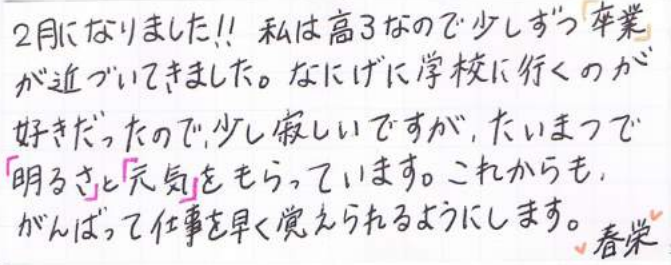 2月になりました!! 私は高3なので少しずつ「卒業」
が近づいてきました。なにげに学校に行くのが
好きだったので、少し寂しいですが、たいまつで
「明るさ」と「元気」をもらっています。これからも、
がんばって仕事を早く覚えられるようにします。
春栄